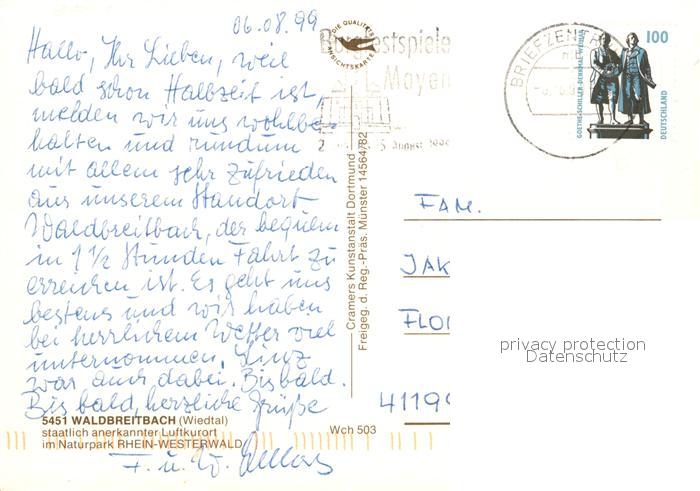 06.08.99
Hallo, Ihr Lieben, weil
bald schon Halbzeit ist,
melden wir uns wohlbe-
halten und rundum
mit allem sehr zufrieden
aus unserem Standort
Waldbreitbach, der bequem
in 1 1/2 Stunden Fahrt zu
erreichen ist. Es geht uns
bestens und wir haben
bei herrlichem Wetter viel
unternommen. Linz
war auch dabei. Bis bald.
Bis bald, herzliche Grüße
F. u. W.
5451 WALDBREITBACH (Wiedtal)
staatlich anerkannter Luftkurort
im Naturpark RHEIN-WESTERWALD
Wch 503
DIE QUALITÄTS
ANSICHTSKARTE
Cramers Kunstanstalt Dortmund
Freigeg. d. Reg.-Präs. Münster 14564/82
Burgfestspiele
Mayen
BRIEFZEN
100
GOETHE-SCHILLER-DENKMAL WEIMAR
DEUTSCHLAND
FAM.
JAK
FLO
4119
privacy protection
Datenschutz